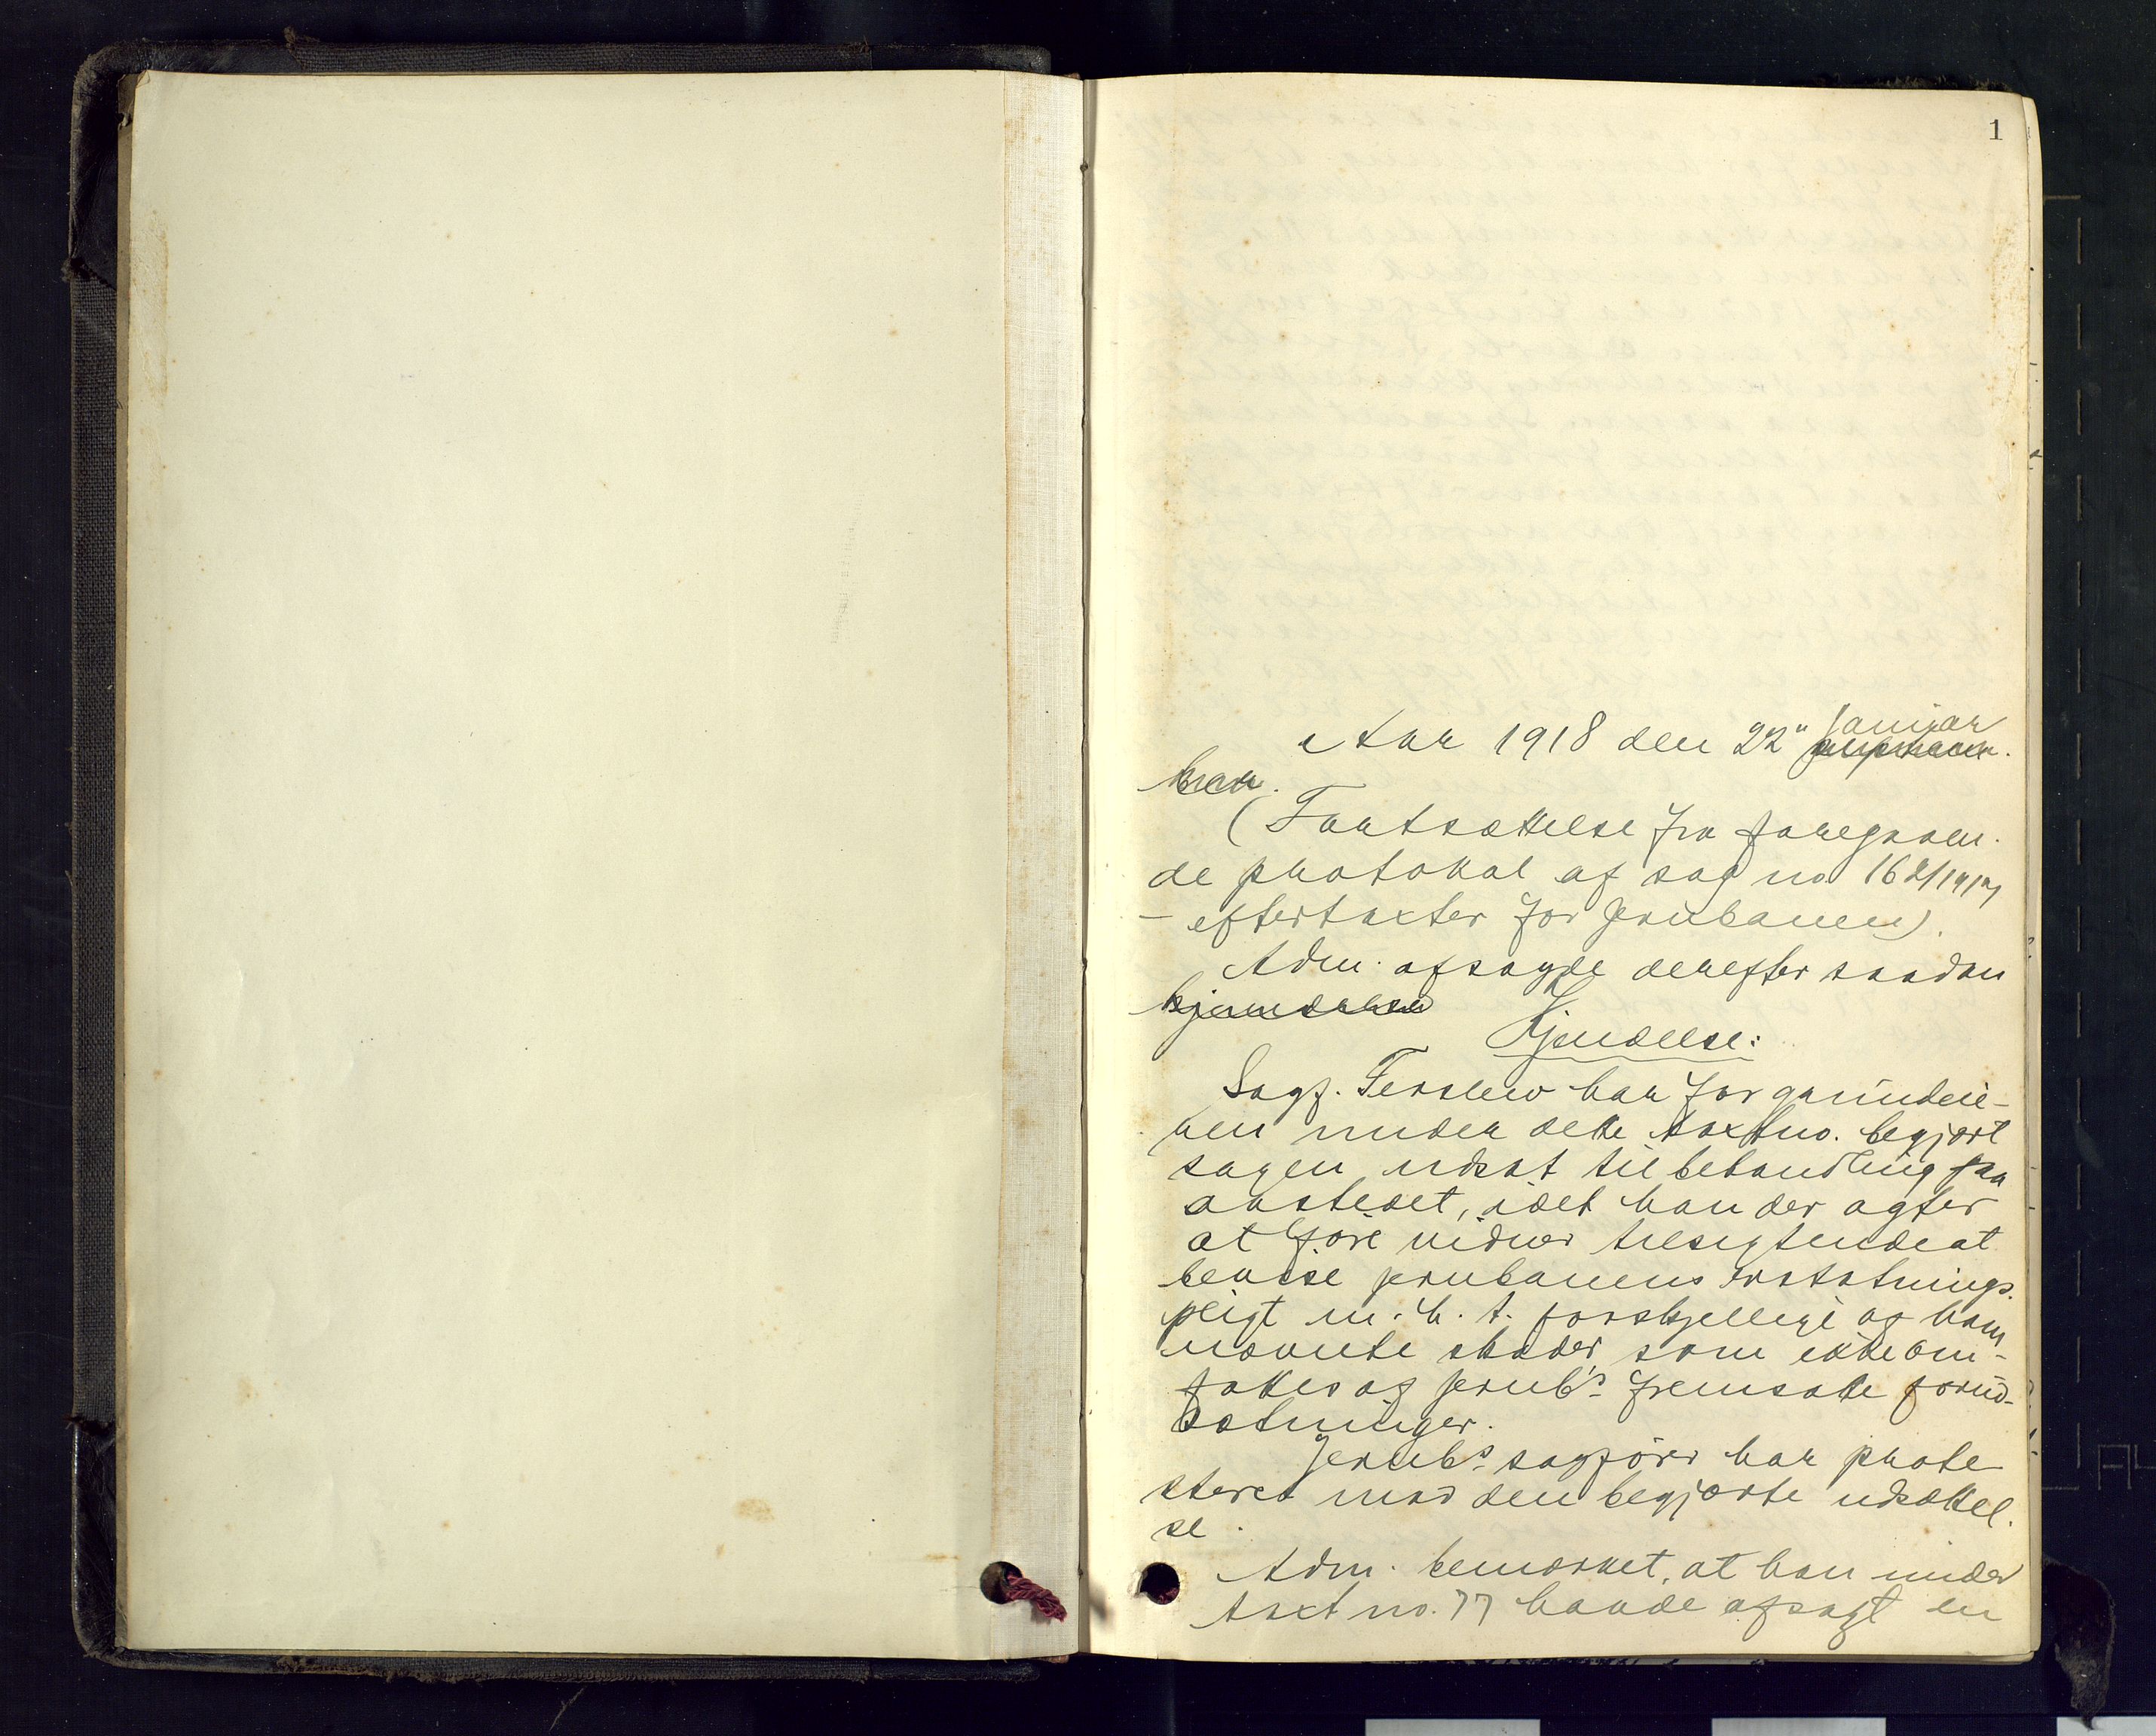 1
Aar 1918 den 22" januar
(Fortsættelse fra foregaaen-
de protokol af sag no 162/1917
- eftertakster for jernbanen).
Adm. afsagde derefter saadan
kjendelse
Kjendelse:
Sagf. Fenslew har for grundeie-
ren under dette taxtno. begjært
sagen udsat til behandling paa
aastedet, idet han der agter
at føre vidner tilsigtende at
bevise jernbanens erstatnings-
pligt m.h.t. forskjellige af ham
nævnte skader, som ikke om-
fattes af jernb's fremsatte forud-
sætninger.
Jernb's sagfører har prote-
steret mod den begjærte udsættel-
se.
Adm. bemærket, at han under
taxt no. 77 havde afsagt en